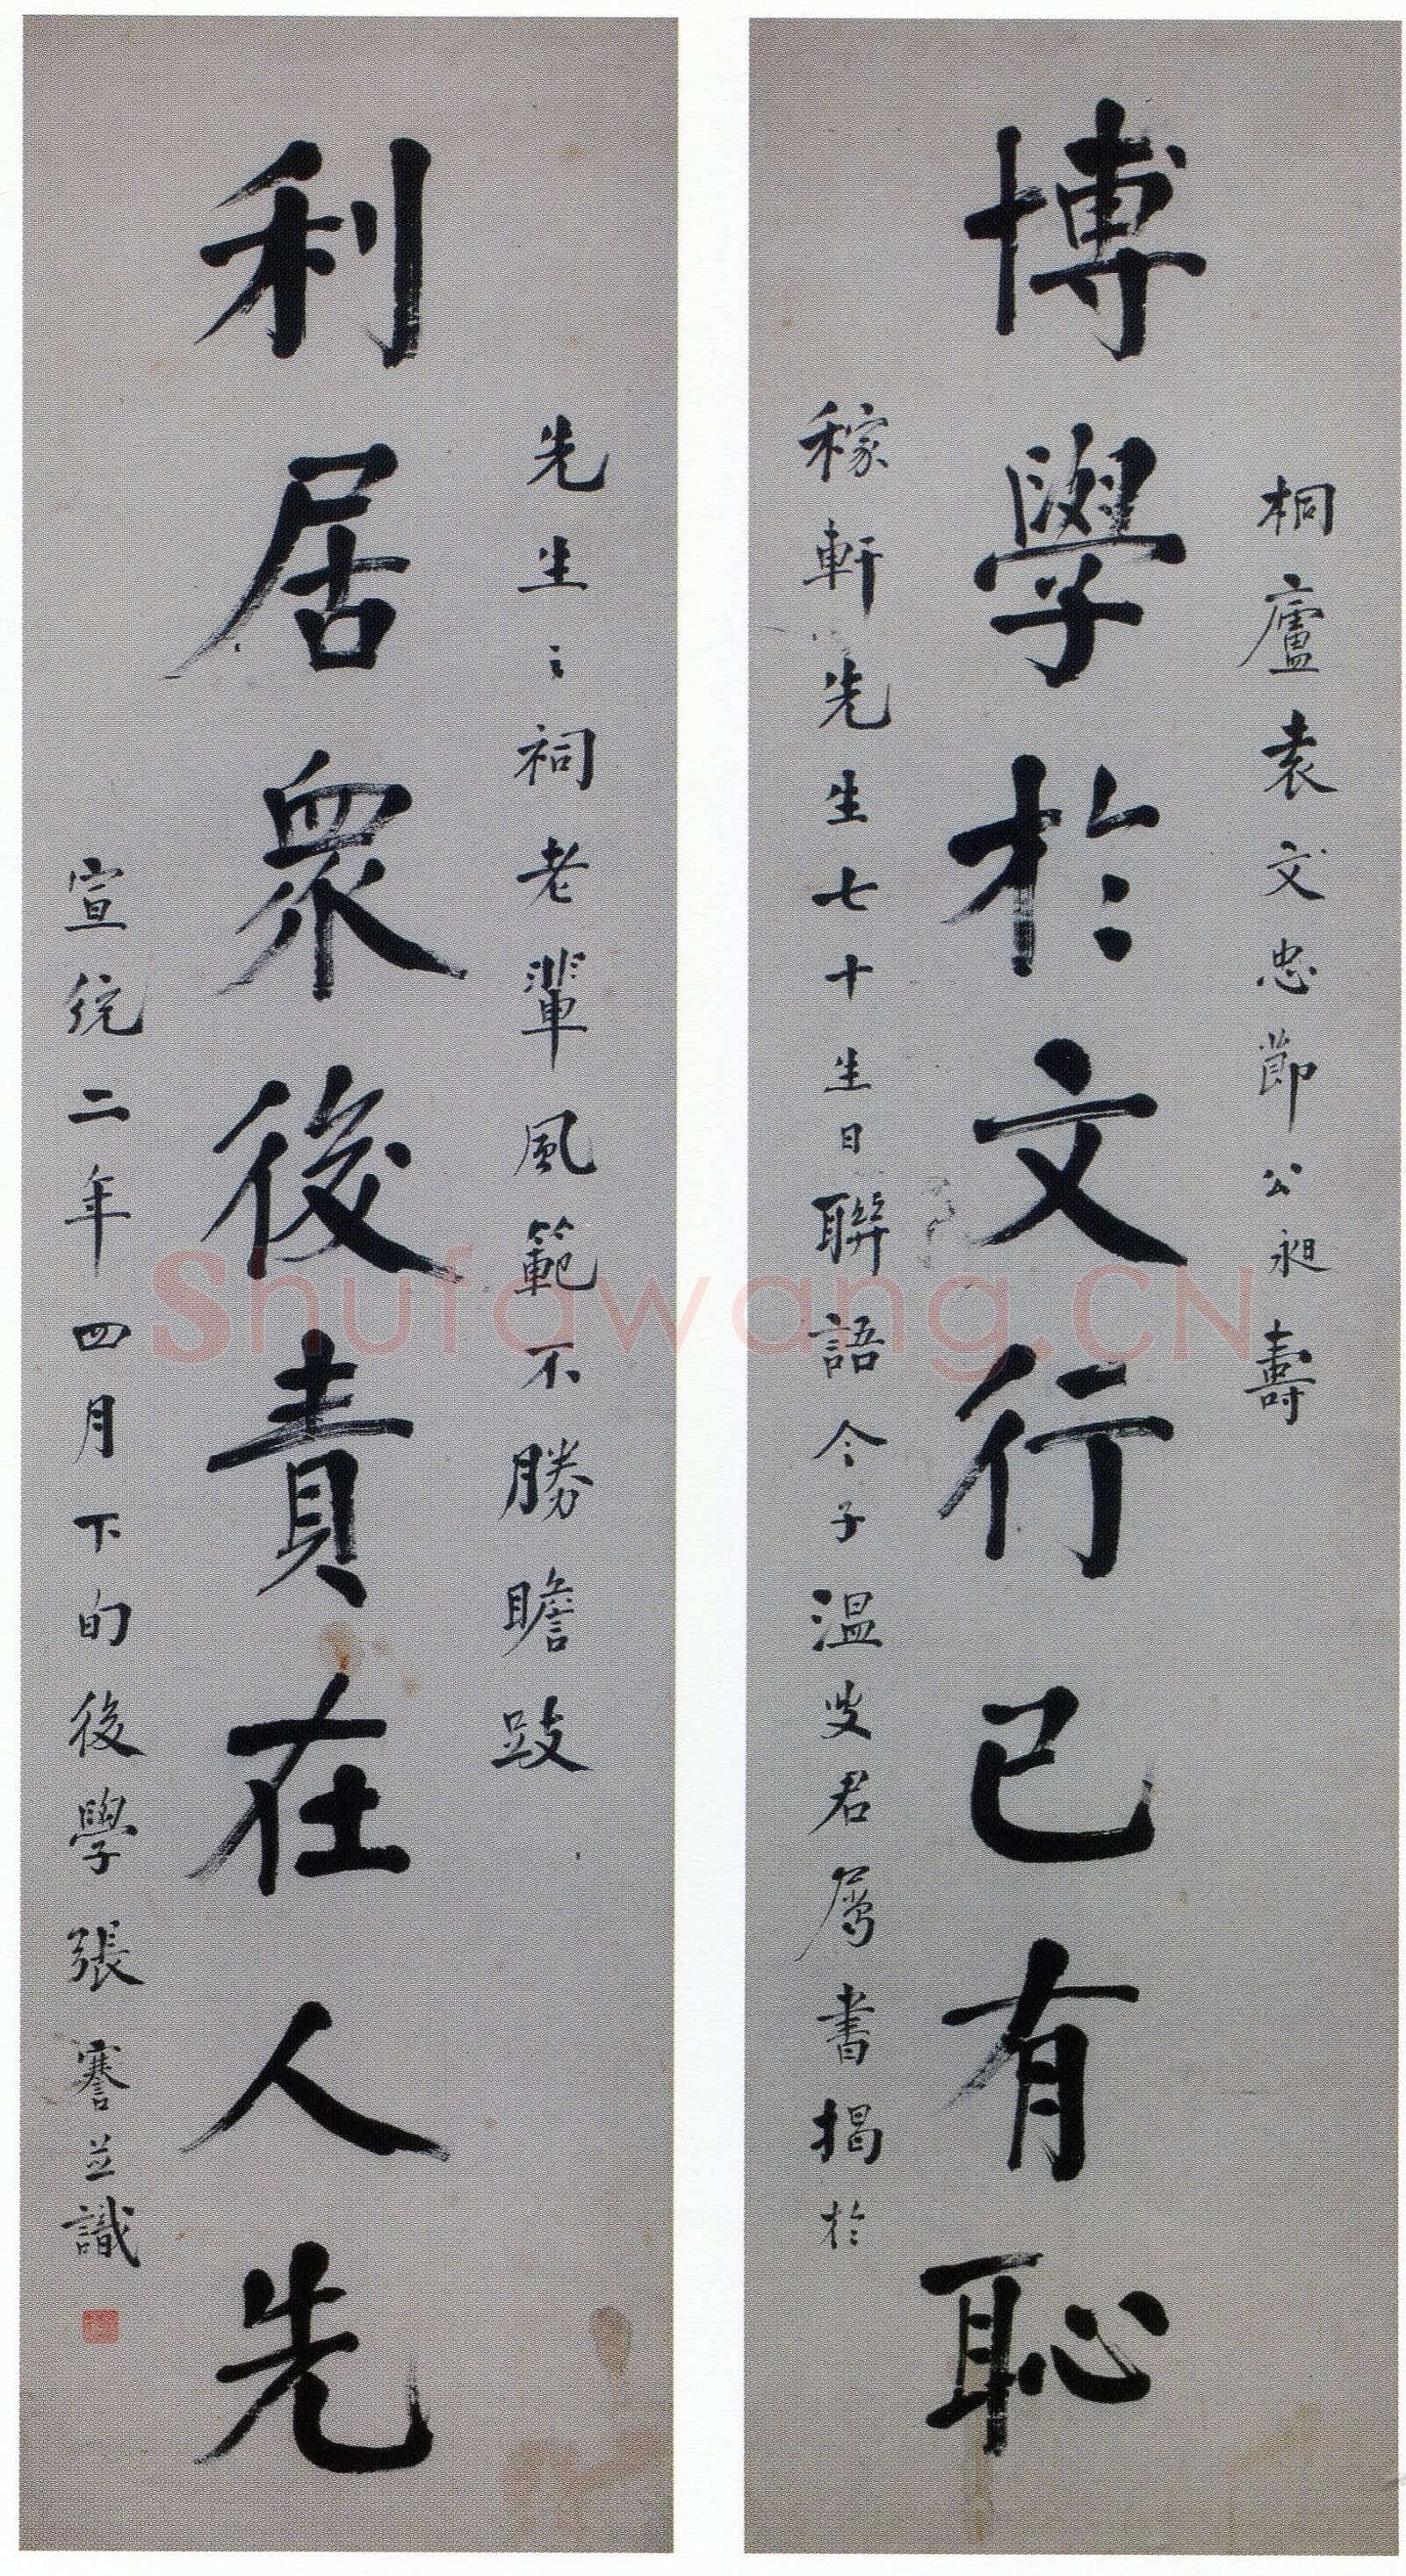 桐廬袁文忠節公昶壽
博學於文行已有恥
稼軒先生七十生日聯語令子温叟君屬書揭於
先生之祠老輩風範不勝瞻跂
利居眾後責在人先
宣統二年四月下旬後學張謇並識
Shufawang.CN